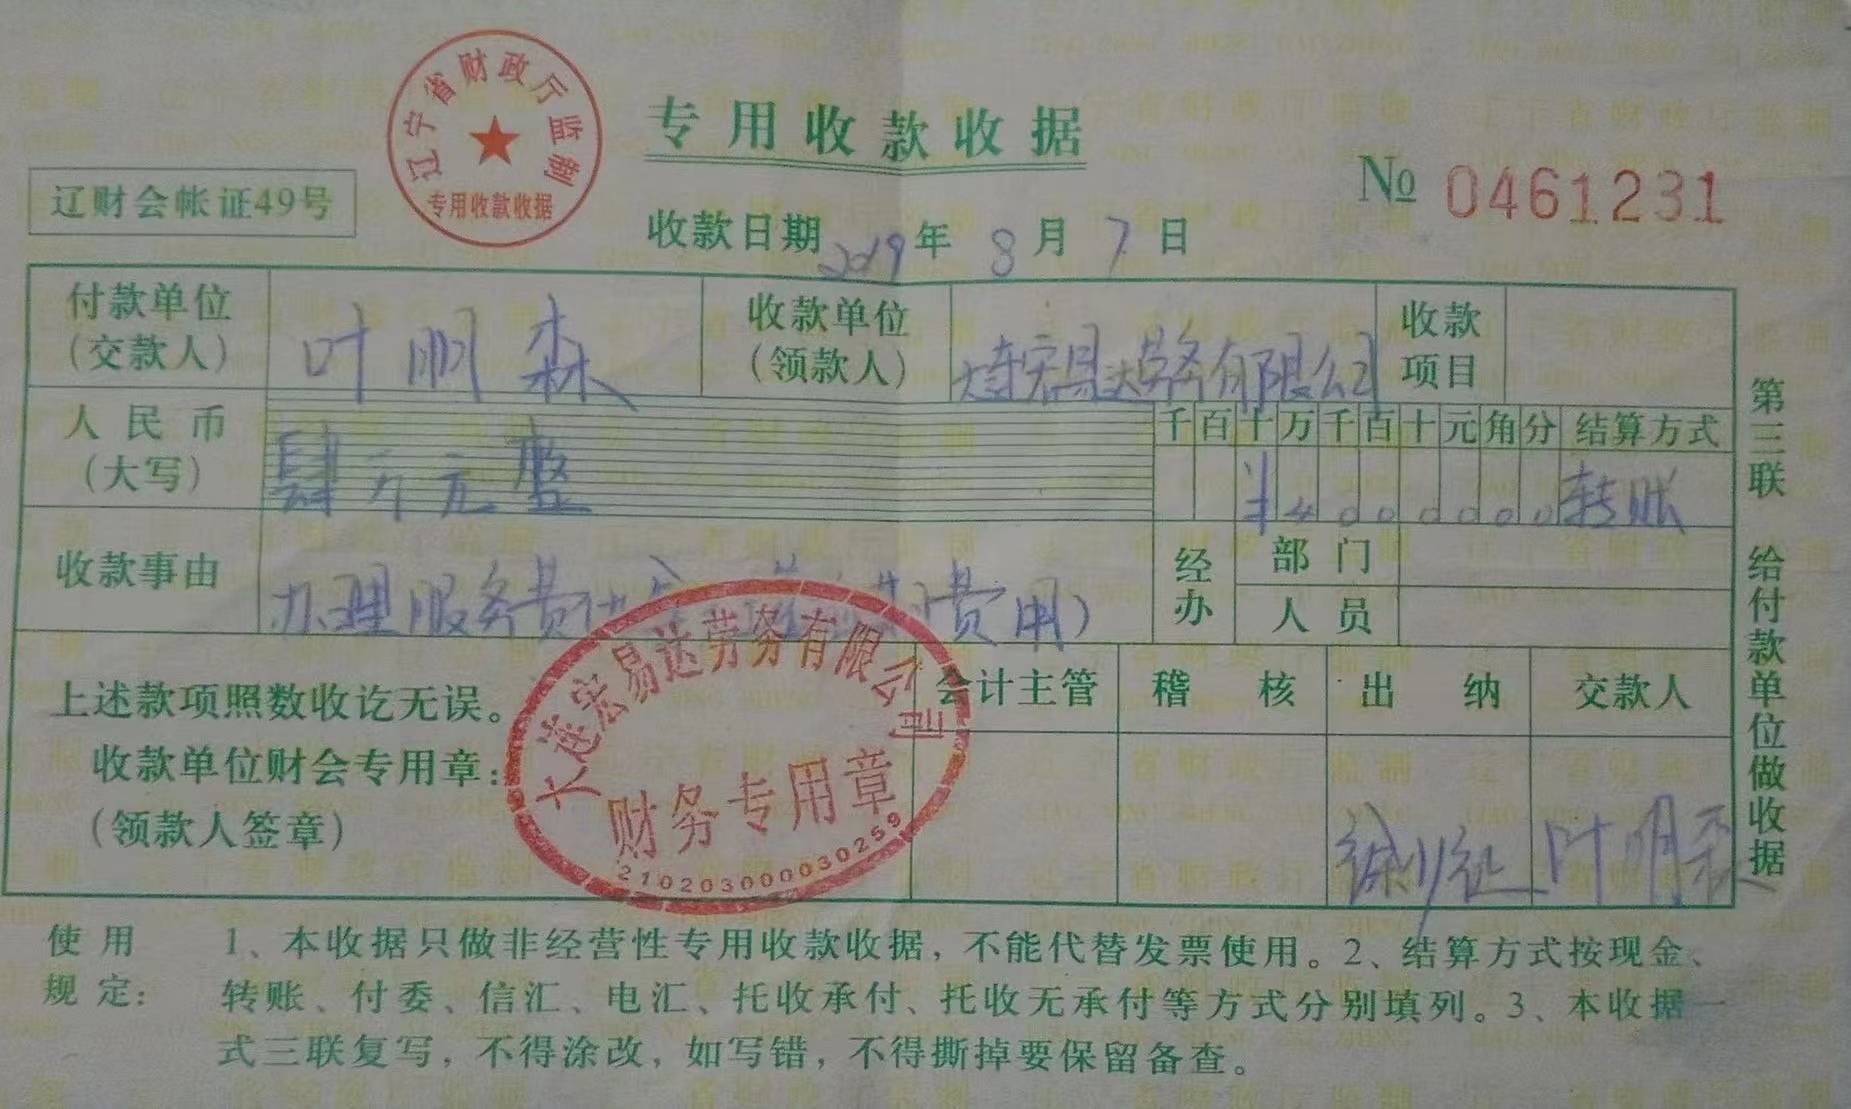 辽宁省财政厅监制
专用收款收据
专用收款收据
辽财会帐证49号
№ 0461231
收款日期 2019 年 8 月 7 日
付款单位 叶明森 收款单位 大连宏易达劳务有限公司 收款
(交款人) (领款人) 项目
人民币 千 百 十 万 千 百 十 元 角 分 结算方式
(大写) 肆万元整 ¥ 4 0 0 0 0 0 0 转账
收款事由 办理服务费 费用) 经办 部门
人员
上述款项照数收讫无误。 会计主管 稽核 出纳 交款人
收款单位财会专用章:
(领款人签章) 叶明森
大连宏易达劳务有限公司
财务专用章
2102030000030259
第三联 给付款单位做收据
使用 1、本收据只做非经营性专用收款收据,不能代替发票使用。2、结算方式按现金、
规定: 转账、付委、信汇、电汇、托收承付、托收无承付等方式分别填列。3、本收据一
式三联复写,不得涂改,如写错,不得撕掉要保留备查。